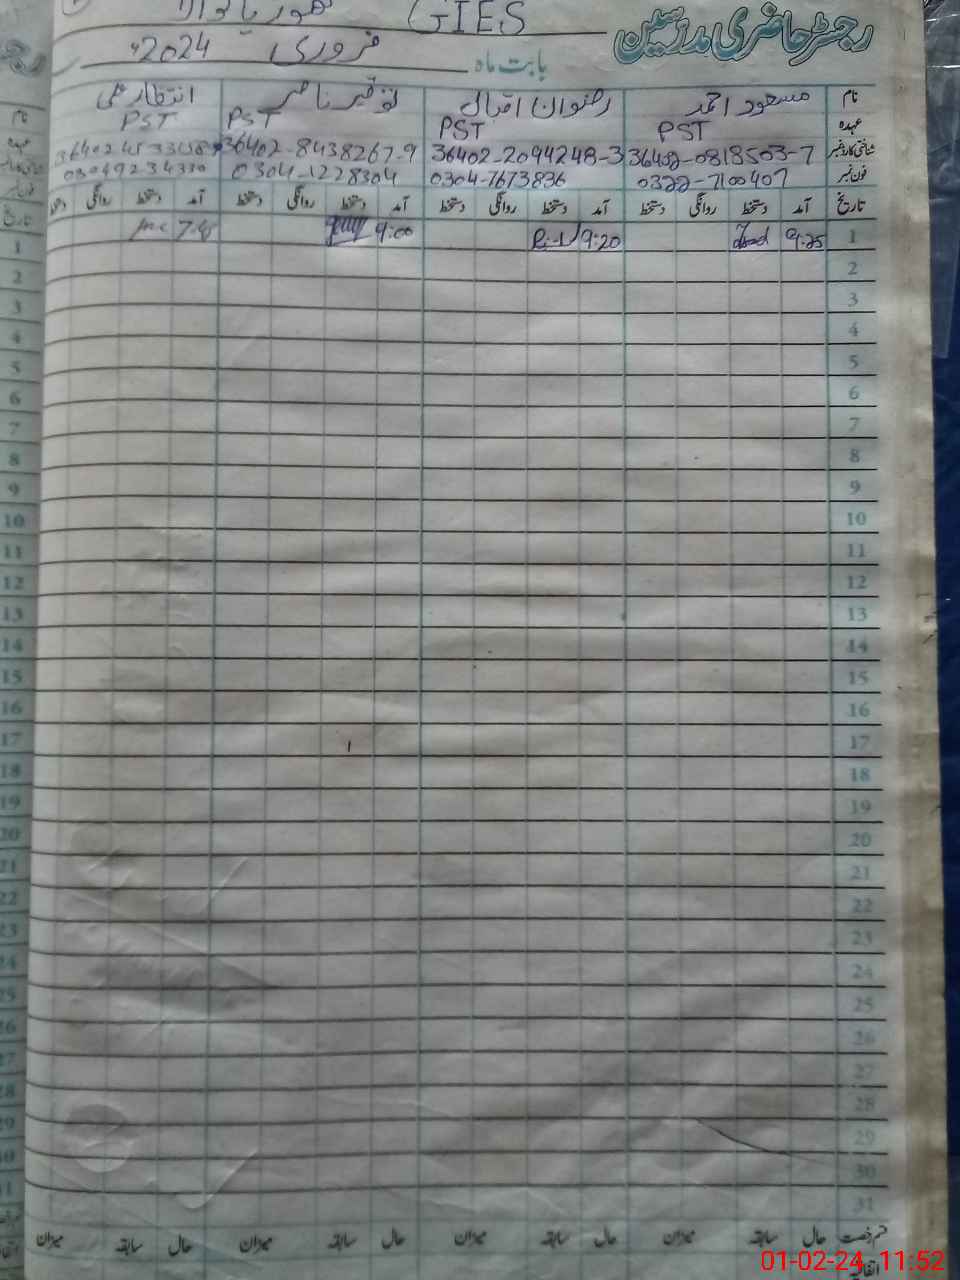 رجسٹر حاضری مدرسین GIES
بابت ماہ فروری 2024ء
نام مسعود احمد رضوان اقبال توقیر ناصر انتظار علی
عہدہ PST PST PST PST
شناختی کارڈ نمبر 36402-0818503-7 36402-2094248-3 36402-8438267-9
فون نمبر 0322-7100407 0304-7673836 0304-1228304 03049234330
تاریخ آمد دستخط روانگی دستخط آمد دستخط روانگی دستخط آمد دستخط روانگی دستخط آمد دستخط روانگی دستخط
1 9:25 9:20 9:00 7:45
2
3
4
5
6
7
8
9
10
11
12
13
14
15
16
17
18
19
20
21
22
23
24
25
26
27
28
29
30
31
قسم رخصت حال سابقہ میزان حال سابقہ میزان حال سابقہ میزان حال سابقہ میزان
اتفاقیہ
01-02-24 11:52